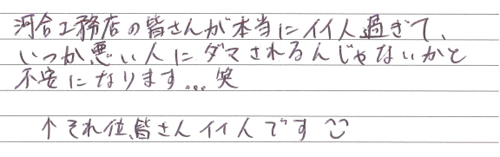 河合工務店の皆さんが本当にイイ人過ぎて、
いつか悪い人にダマされるんじゃないかと
不安になります...笑
↑それ位皆さんイイ人です